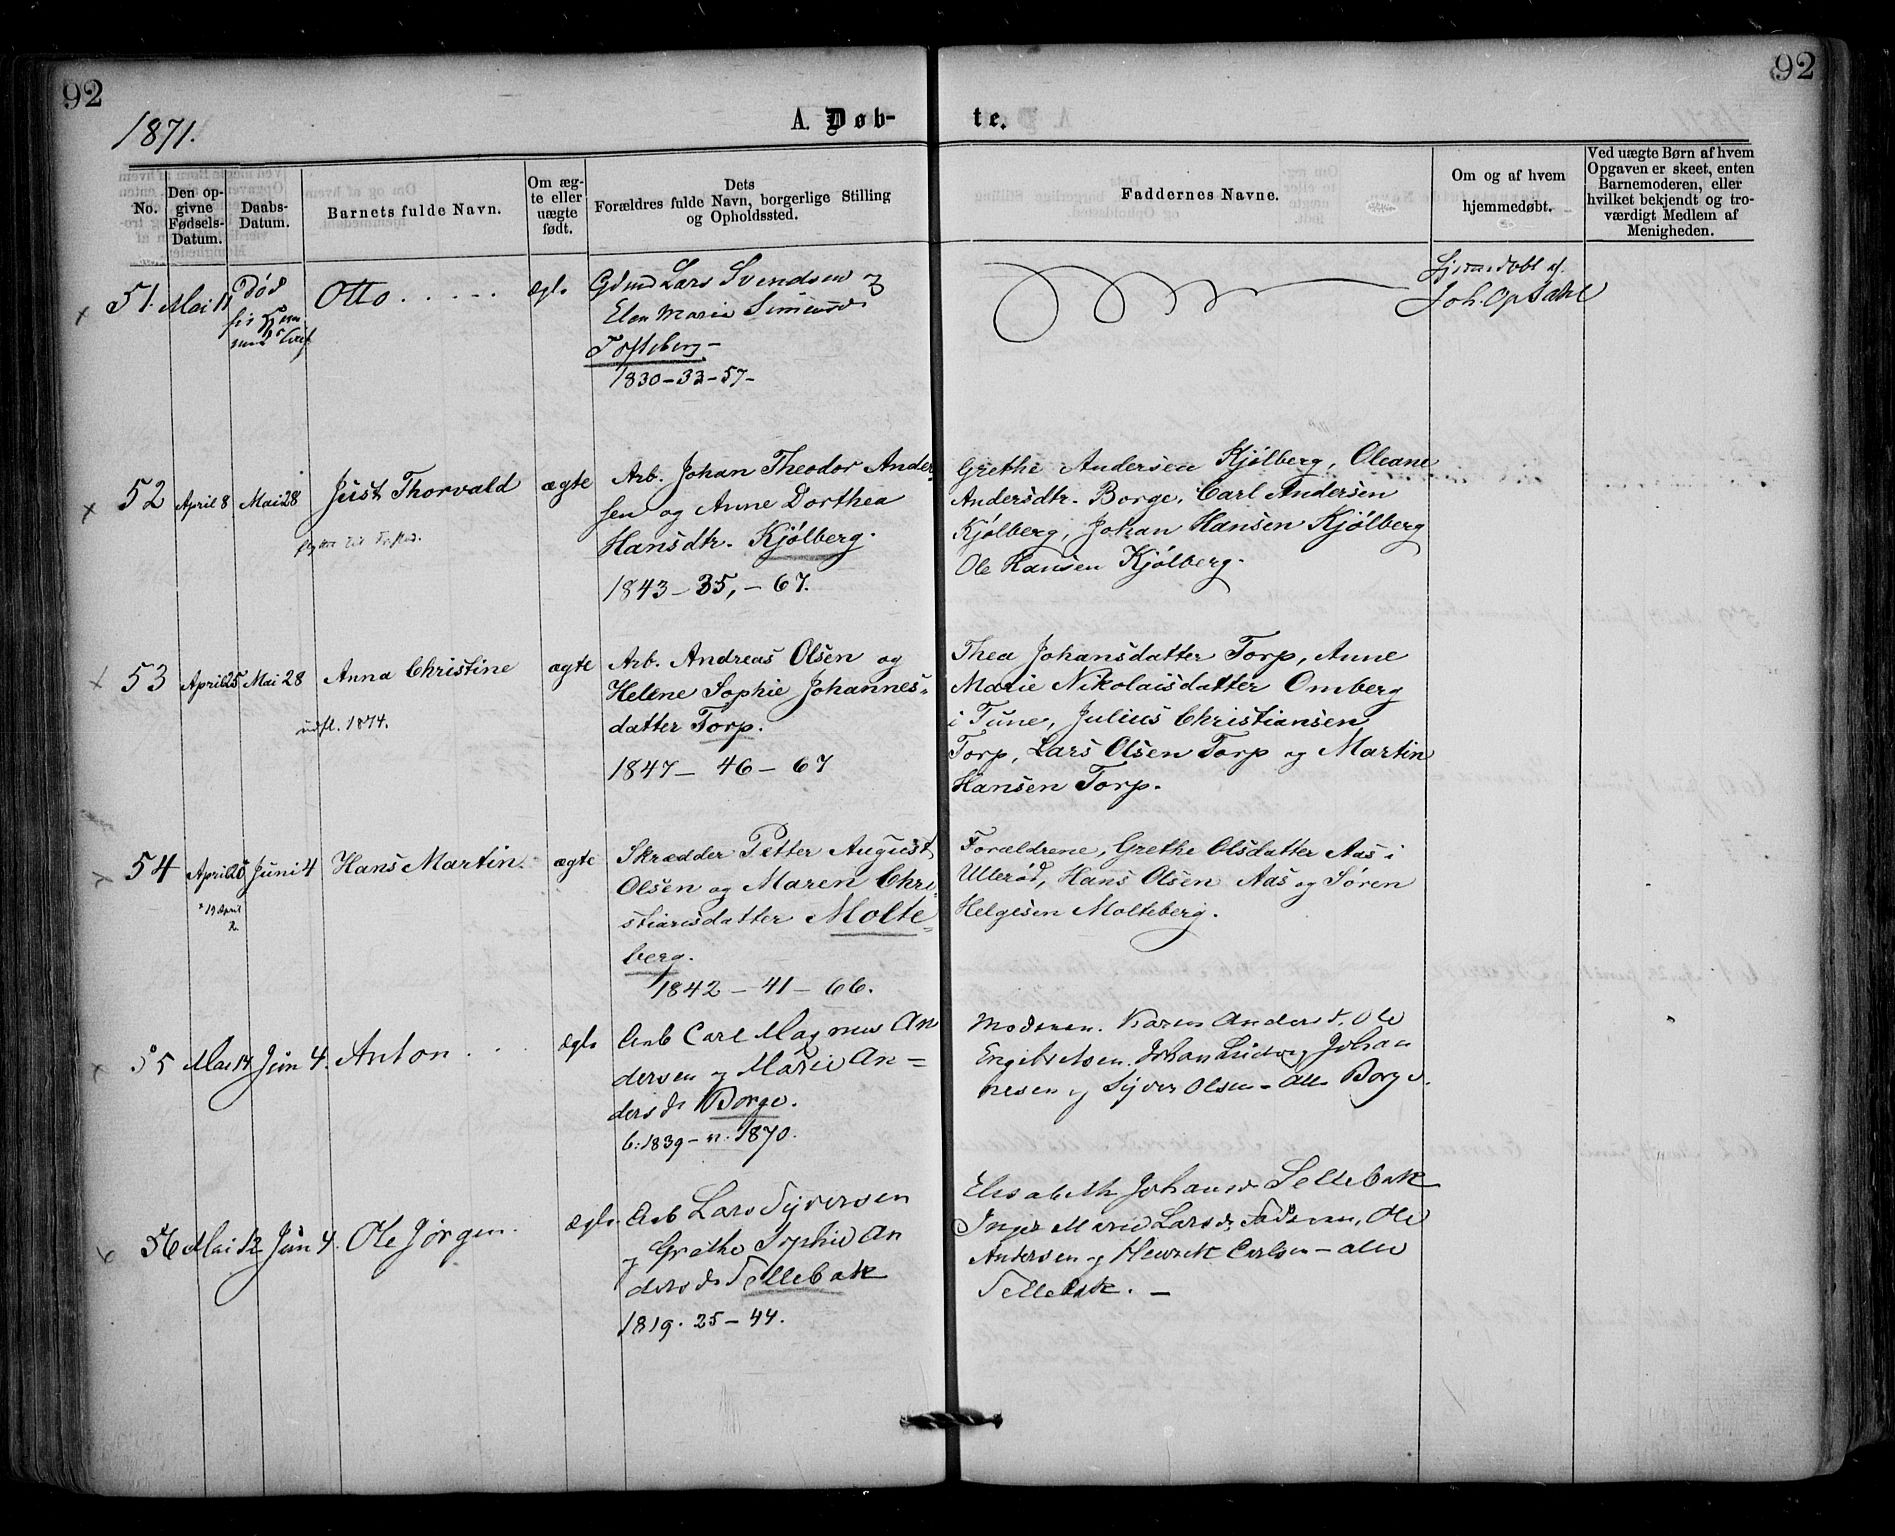 92
92
1871.
A. Døb-
te.
No.
Den op-
givne
Fødsels-
Datum.
Daabs-
Datum.
Barnets fulde Navn.
Om æg-
te eller
uægte
født.
Dets
Forældres fulde Navn, borgerlige Stilling
og Opholdssted.
Faddernes Navne.
Om og af hvem
hjemmedøbt.
Ved uægte Børn af hvem
Opgaven er skeet, enten
Barnemoderen, eller
hvilket bekjendt og tro-
værdigt Medlem af
Menigheden.
51. Mai 11 Død
Otto
ægte
Gdmd Lars Svendsen og
Elen Marie Simensd.
Tofteberg
1830-33-57-
Hjemdøbt af
Joh. Opsahl
52 April 8 Mai 28 Just Thorvald ægte
Arb. Johan Theodor Ander
sen og Anne Dorthea
Hansdtr. Kjølberg.
1843-35,-67.
Grethe Andersen Kjølberg, Oleane
Andersdtr. Borge, Carl Andersen
Kjølberg, Johan Hansen Kjølberg
Ole Hansen Kjølberg.
53 April 25 Mai 28 Anna Christine ægte
udfl. 1874.
Arb. Andreas Olsen og
Helene Sophie Johannes-
datter Torp.
1847-46-67
Thea Johansdatter Torp, Anne
Marie Nikolaisdatter Omberg
i Tune, Julius Christiansen
Torp, Lars Olsen Torp og Martin
Hansen Torp.
54 April 20 Juni 4 Hans Martin. ægte
* 19 April
Skrædder Petter August
Olsen og Maren Chri-
stiansdatter Molte-
berg.
1842-41-66.
Forældrene, Grethe Olsdatter Aas i
Ullerød, Hans Olsen Aas og Søren
Helgesen Molteberg.
55 Mai 14 Jun 4. Anton ægte
Arb Carl Magnus An
dersen og Marie An-
dersd. Borge.
b: 1839- n. 1870.
Moderen. Karen Andersd. Ole
Engebretsen. Johan Ludvig Johan
nesen og Syver Olsen - alle Borge.
56 Mai 12 Jun 4. Ole Jørgen. ægte
Arb Lars Syversen
og Grethe Sophie An
dersd. Sellebak
1819. 25-44.
Elisabeth Johansd Sellebak
Inger Marie Larsd. Ole
Andersen og Henrik Carlsen - alle
Sellebak.